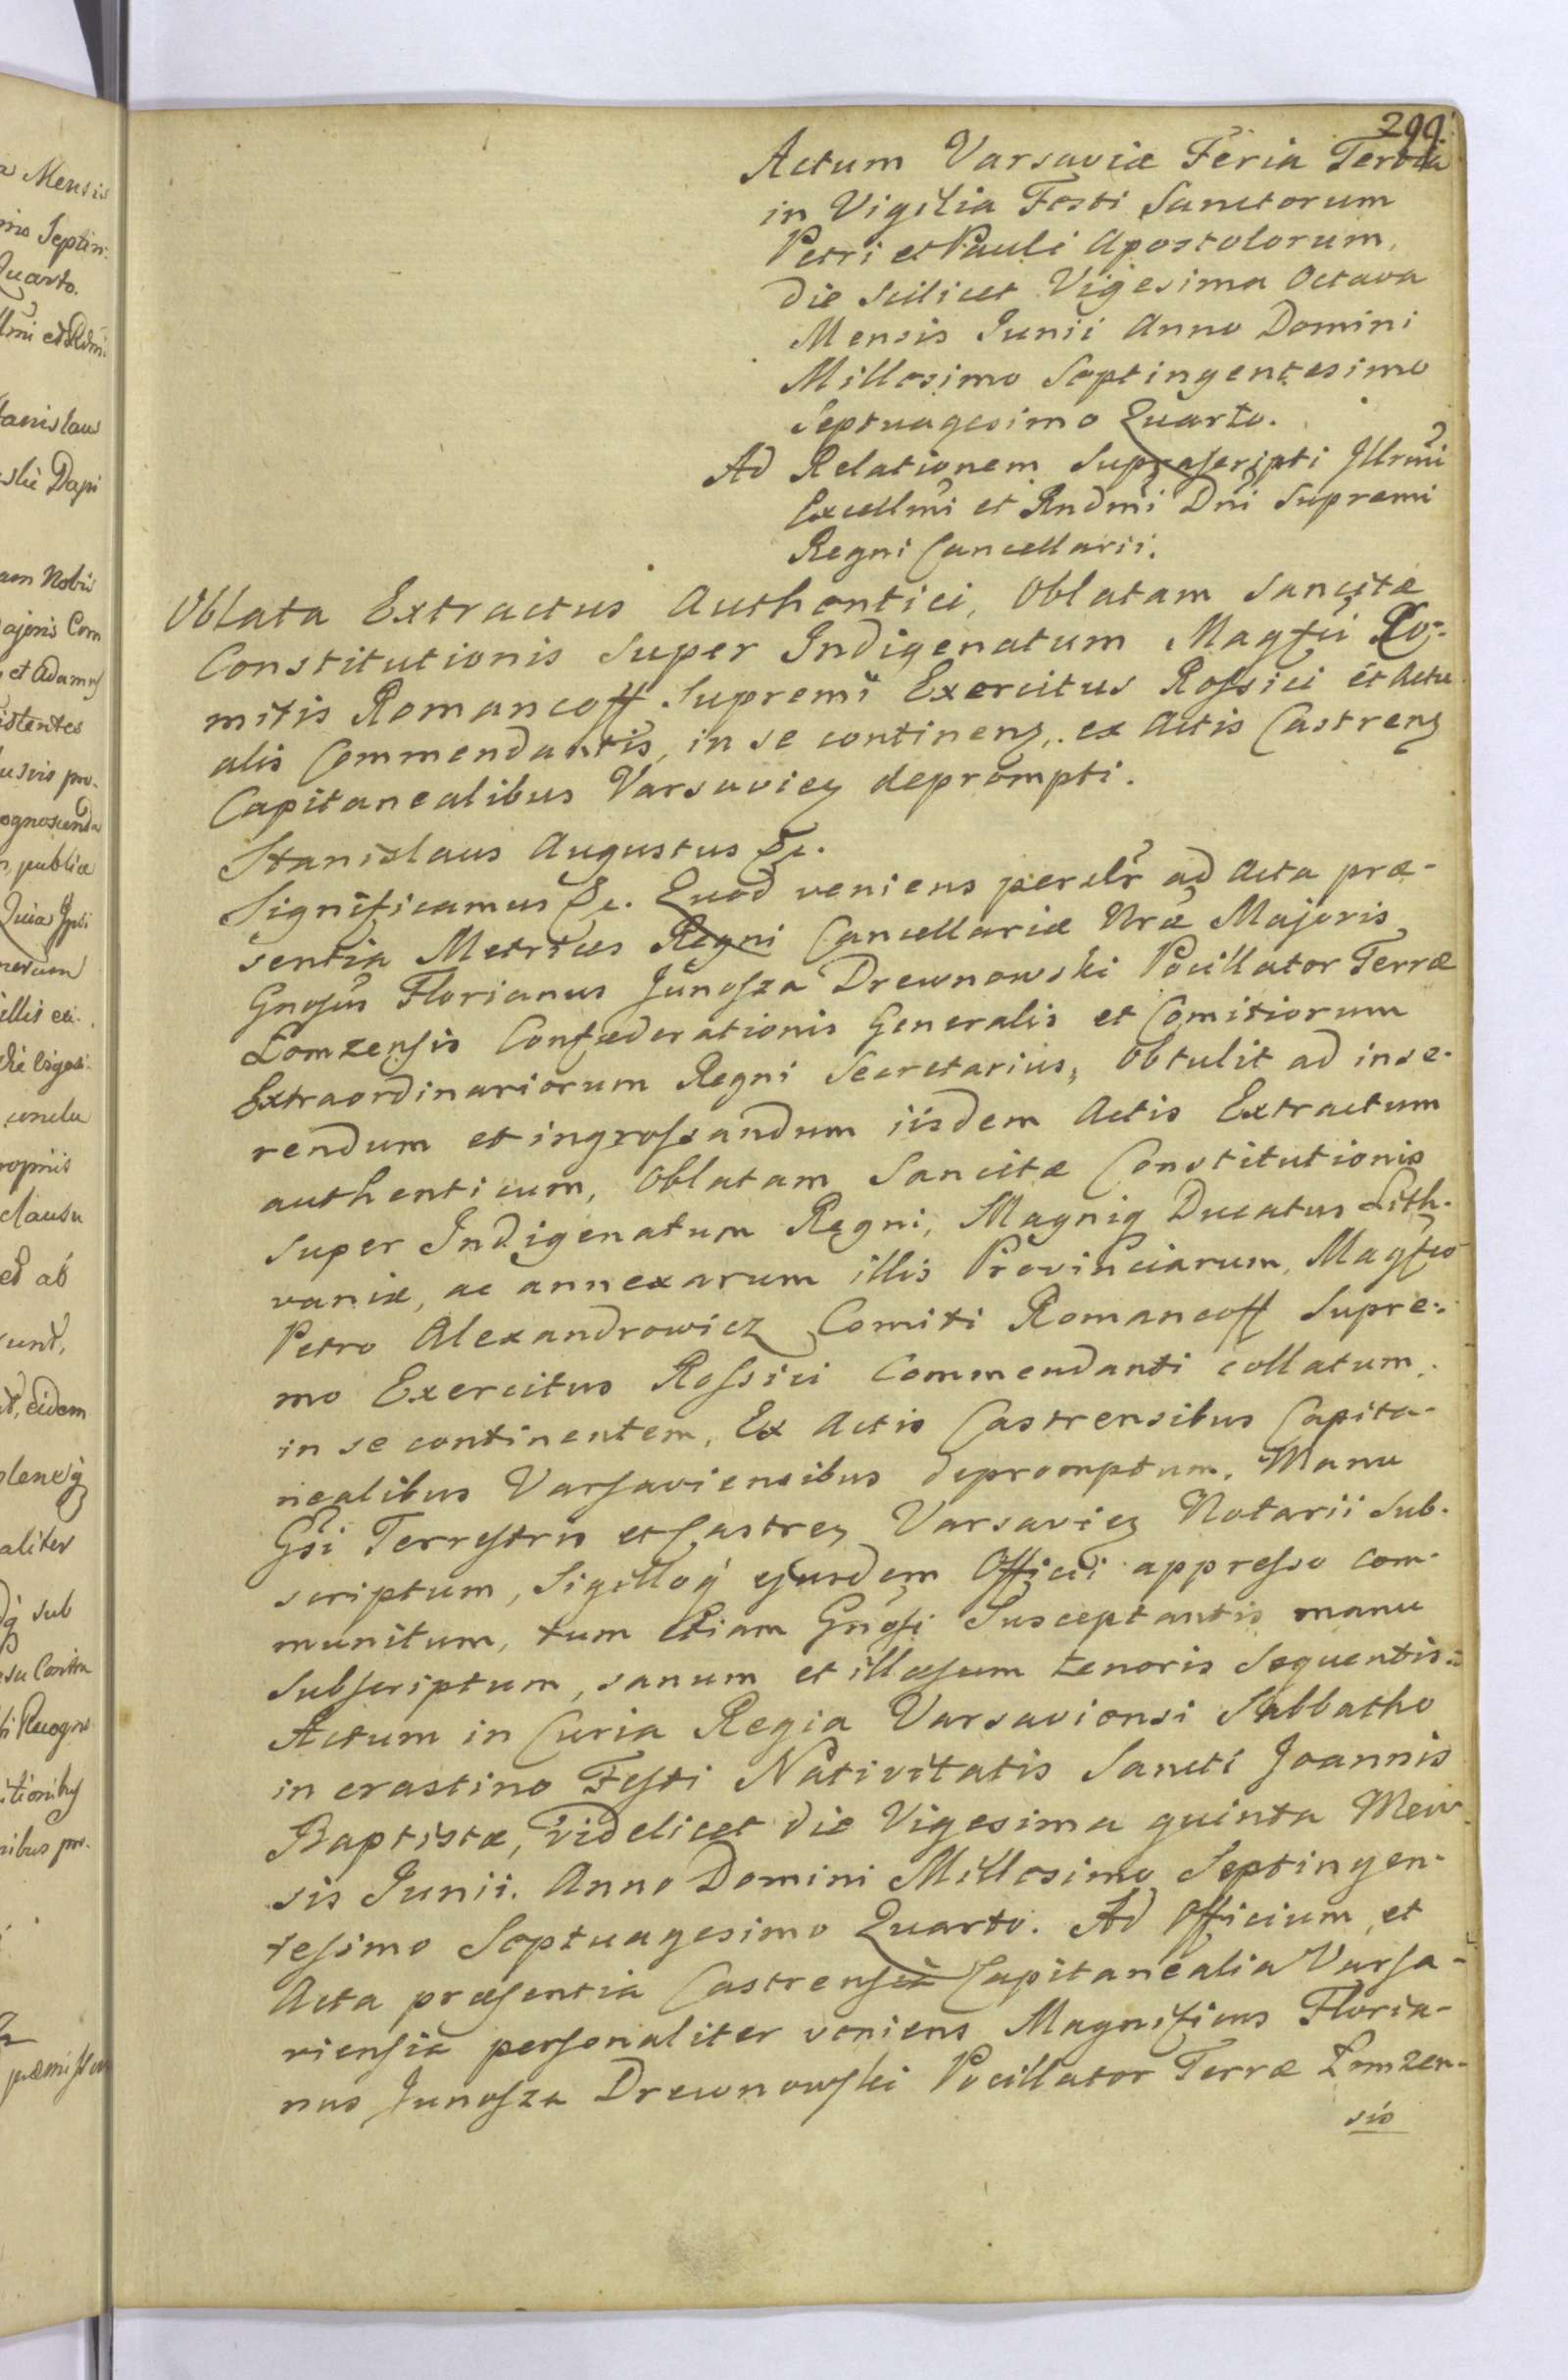 a Mensis
Septin:
Quarto.
tanislaus
slie Dapi
am Nobis
ajoris Com
et Adamus
istentes
usvis pro.
ognoscenda
publica
Quia Ipsi
illis
conclu
clausu
ed ab
sunt,
eidem
aliter
sub
Contra
Recogno
299
Actum Varsaviæ Feria Tertia
in Vigilia Festi Sanctorum
Petri et Pauli Apostolorum,
die Scilicet Vigesima Octava
Mensis Junii Anno Domini
Millesimo Septingentesimo
Septuagesimo Quarto.
Ad Relationem Suprascripti Illrmi
Excellmi et Rndmi Dni Supremi
Regni Cancellarii.
Oblata Extractus Authentici, Oblatam Sancitæ
Constitutionis Super Indigenatum Magfci Co-
mitis Romancoff Supremi Exercitus Rossici et Actu
alis Commendantis, in se continenz, ex Actis Castrenz
Capitanealibus Varsaviez deprompti.
Stanislaus Augustus &c.
Significamus &c. Quod veniens perslr ad Acta præ-
sentia Metrices Regni Cancellariæ Nræ Majoris
Gnosus Florianus Junosza Drewnowski Pocillator Terræ
Lomzensis Confæderationis Generalis et Comitiorum
Extraordinariorum Regni Secretarius, Obtulit ad inse-
rendum et ingrossandum iisdem Actis Extractum
authenticum, Oblatam Sancitæ Constitutionis
super Indigenatum Regni, Magniq Ducatus Lith-
vaniæ, ac annexarum illis Provinciarum, Magfco
Petro Alexandrowicz Comiti Romancoff Supre-
mo Exercitus Rossici Commendanti collatum,
in se continentem, Ex Actis Castrensibus Capita-
nealibus Varsaviensibus depromptum, Manu
Gsi Terrestris et Castrez Varsaviez Notarii sub-
scriptum, Sigilloq ejusdem Officii appresso com-
munitum, tum etiam Gnosi Susceptantis manu
subscriptum, sanum et illæsum tenoris sequentis:
Actum in Curia Regia Varsaviensi Sabbatho
in crastino Festi Nativitatis Sancti Joannis
Baptistæ, videlicet die Vigesima quinta Men-
sis Junii. Anno Domini Millesimo Septingen-
tesimo Septuagesimo Quarto. Ad Officium et
Acta præsentia Castrensia Capitanealia Varsa-
viensia personaliter veniens Magnificus Floria-
nus Junosza Drewnowski Pocillator Terræ Lomzen-
sis